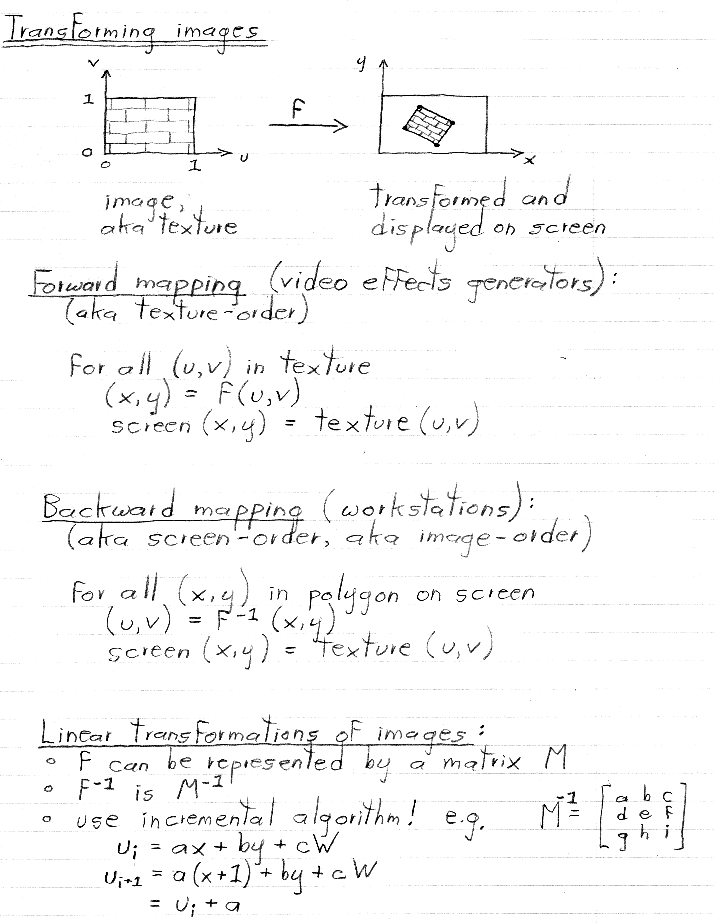 Transforming images
v
1
0
0
1
u
F
y
x
image,
aka texture
transformed and
displayed on screen
Forward mapping (video effects generators):
(aka texture-order)
for all (u,v) in texture
(x,y) = F(u,v)
screen (x,y) = texture (u,v)
Backward mapping (workstations):
(aka screen-order, aka image-order)
for all (x,y) in polygon on screen
(u,v) = F⁻¹ (x,y)
screen (x,y) = texture (u,v)
Linear transformations of images:
° F can be represented by a matrix M
° F⁻¹ is M⁻¹
° use incremental algorithm! e.g. M⁻¹ = [a b c
d e f
g h i]
uᵢ = ax + by + cW
uᵢ₊₁ = a(x+1) + by + cW
= uᵢ + a